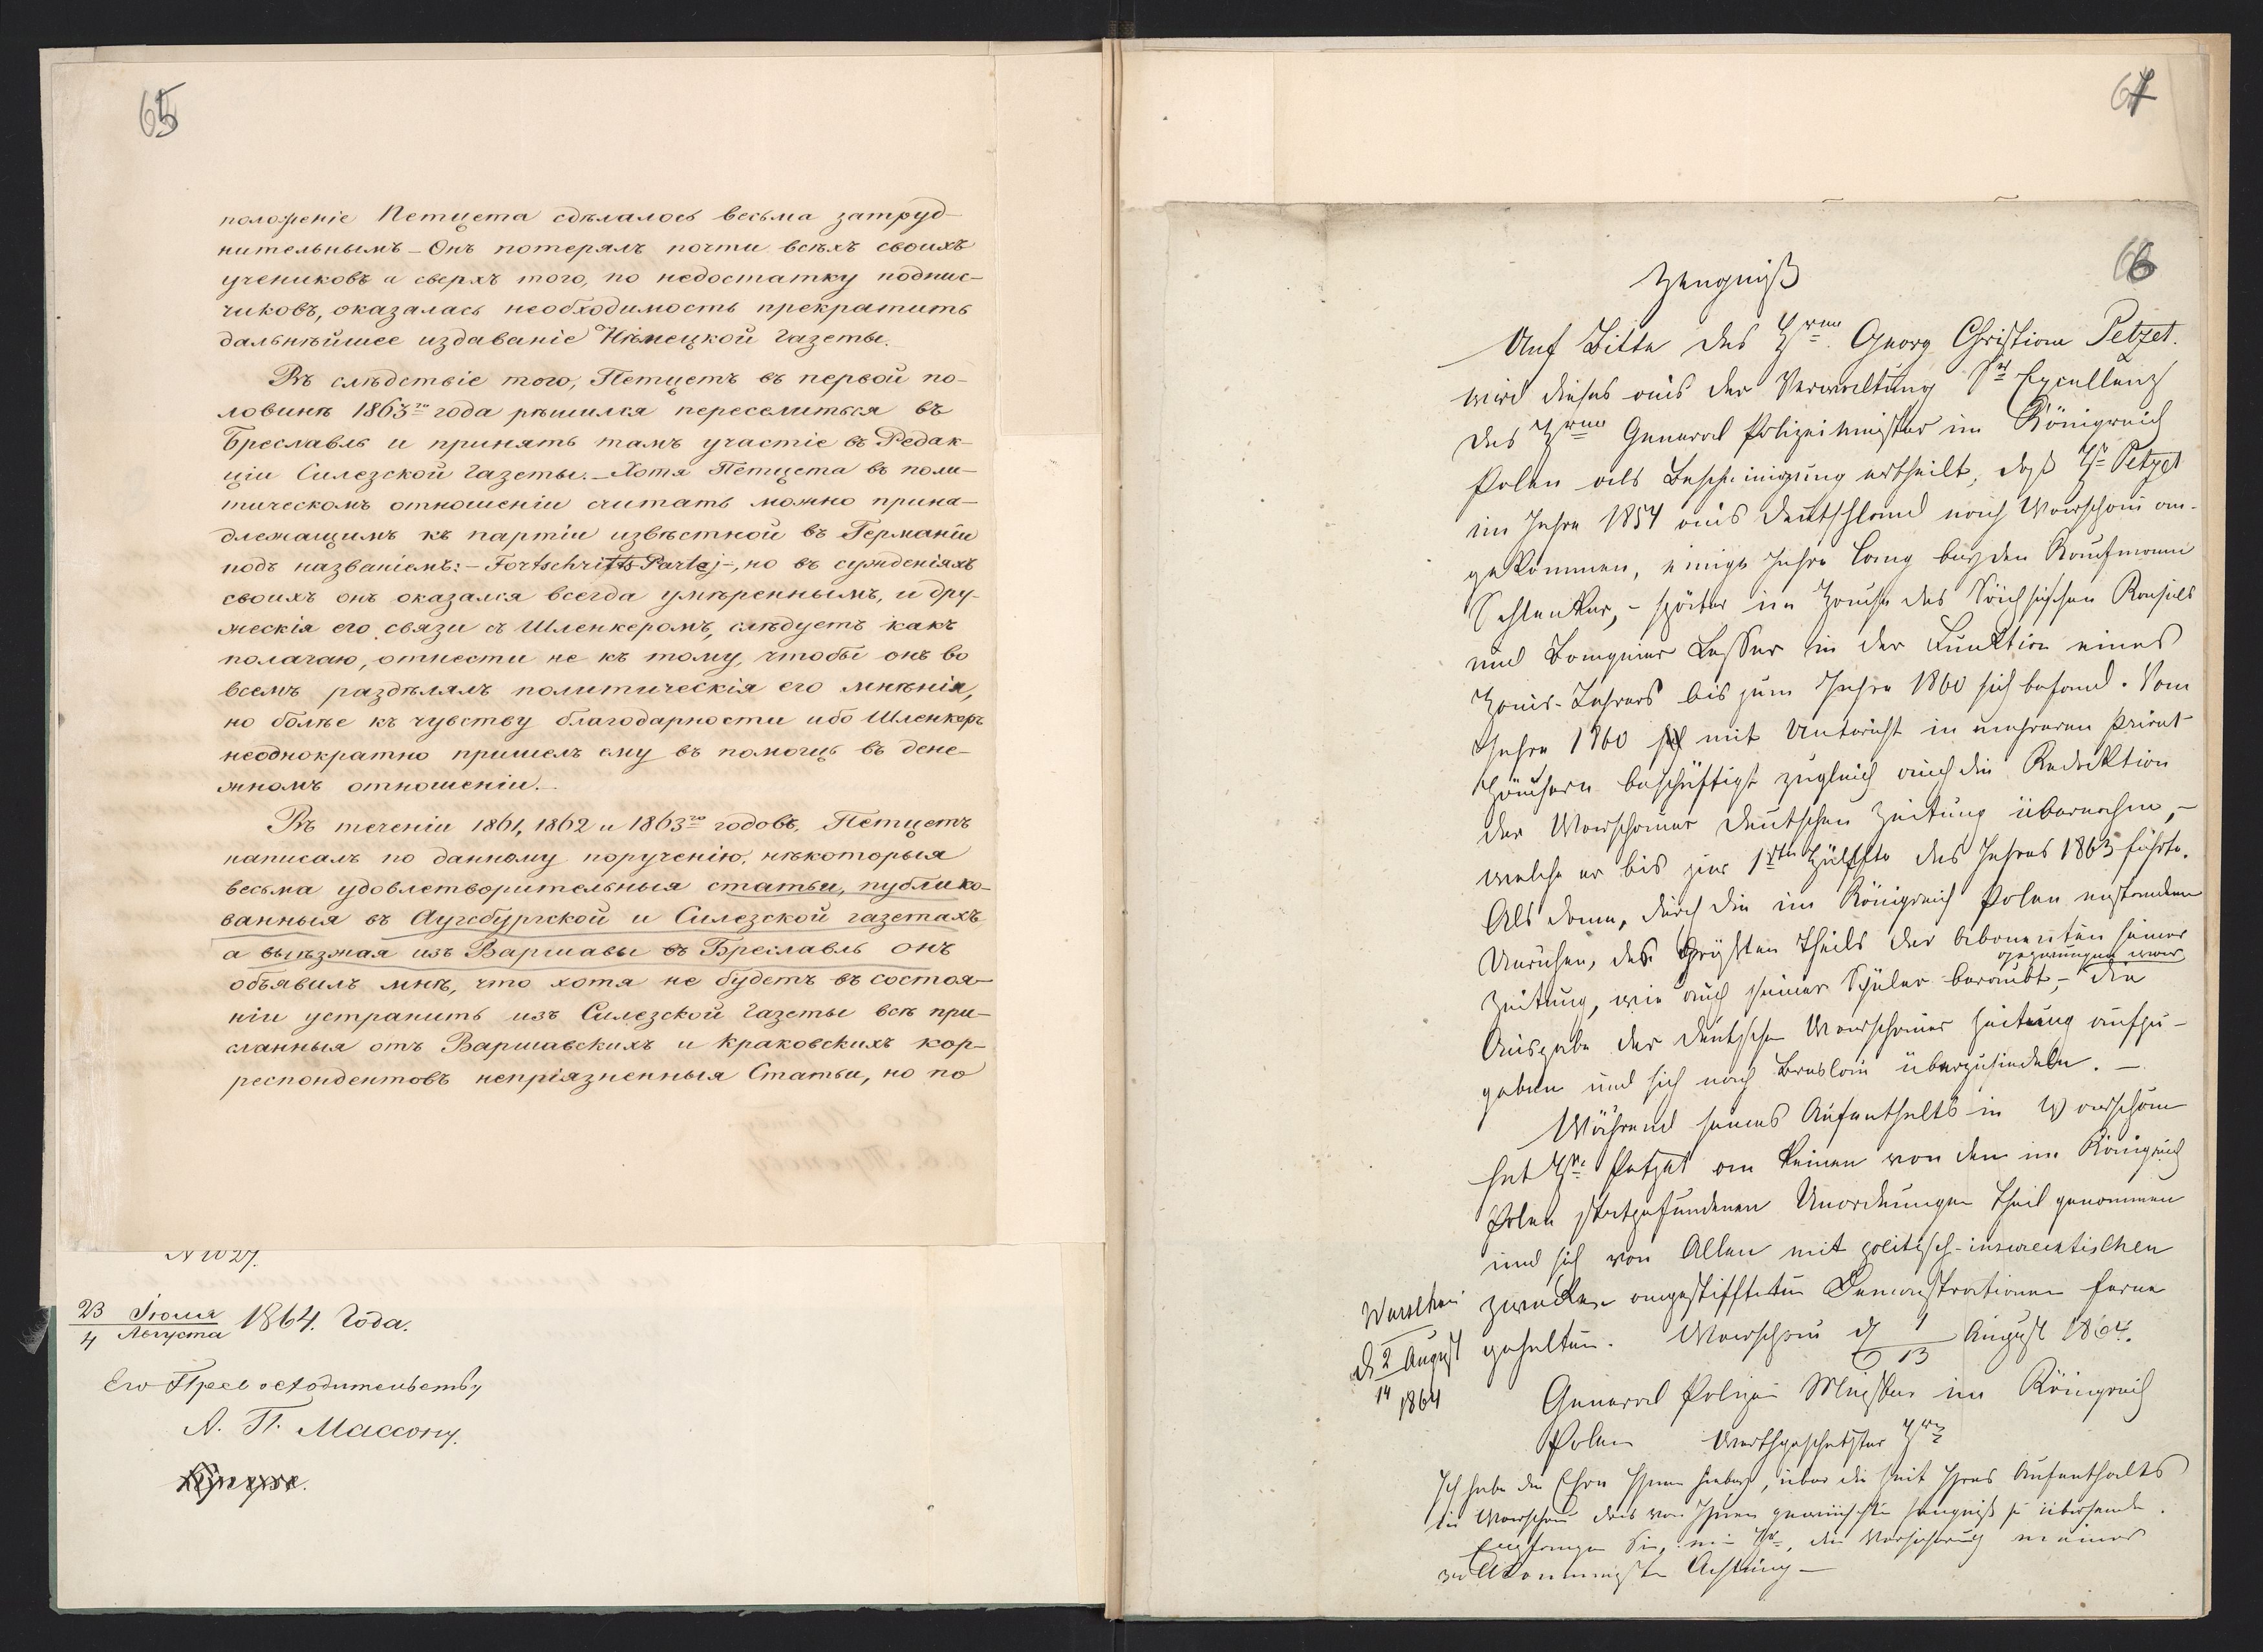 65
положеніе Петцета сдѣлалось весьма затруд-
нительнымъ – Онъ потерялъ почти всѣхъ своихъ
учениковъ а сверхъ того, по недостатку подпис-
чиковъ, оказалась необходимость прекратить
дальнѣйшее издаваніе Нѣмецкой Газеты.
Въ слѣдствіе того, Петцетъ въ первой по-
ловинѣ 1863го года рѣшился переселиться въ
Бреславль и принять тамъ участіе въ Редак-
ціи Силезской Газеты. – Хотя Петцета въ поли-
тическомъ отношеніи считать можно прина-
длежащимъ къ партіи извѣстной въ Германіи
подъ названіемъ: – Fortschritts Partej –, но въ сужденіяхъ
своихъ онъ оказался всегда умѣреннымъ, и дру-
жескія его связи съ Шленкеромъ, слѣдуетъ какъ
полагаю, отнести не къ тому, чтобы онъ во
всемъ раздѣлялъ политическія его мнѣнія,
но болѣе къ чувству благодарности ибо Шленкеръ
неоднократно пришелъ ему въ помощь въ дене-
жномъ отношеніи. –
Въ теченіи 1861, 1862 и 1863го годовъ, Петцетъ
написалъ по данному порученію, нѣкоторыя
весьма удовлетворительныя статьи, публико-
ванныя въ Аугсбургской и Силезской газетахъ
а выѣзжая изъ Варшавы въ Бреславль онъ
объявилъ мнѣ, что хотя не будетъ въ состоя-
ніи устранить изъ Силезской Газеты всѣ при-
сланныя отъ Варшавскихъ и Краковскихъ кор-
респондентовъ непріязненныя Статьи, но по
23 Іюля
4 Августа 1864. Года.
Его Превосходительству
А. П. Массону.
67
66
Zeugniß
Auf Bitte des Hrrn Georg Christian Petzet.
wird dieses aus der Verwaltung Sr Excellenz
des Hrrn General Polizeiminister im Königreich
Polen als Bescheinigung ertheilt, daß Hr Petzet
im Jahre 1854 aus Deutschland nach Warschau an-
gekommen, einige Jahre lang bey den Kaufmann
Schlenker, – später im Hause des Sächsischen Konsuls
und Banquier Lesser in der Funktion eines
Haus-Lehrers bis zum Jahre 1860 sich befand. Vom
Jahre 1860 mit Unterricht in mehreren Privat-
Häusern beschäftigt zugleich auch die Redaktion
der Warschauer deutschen Zeitung übernahm, –
welche er bis zur 1sten Hälfte des Jahres 1863 führte.
Als dann, durch die im Königreich Polen enstanden
Unruhen, des größten Theils der Abonenten seiner
gezwungen war
Zeitung, wie auch seiner Schüler beraubt, – die
Ausgabe der deutschen Warschauer Zeitung aufzu-
geben und sich nach Breslau überzusiedeln. –
Während seines Aufenthalts in Warschau
hat Hr. Petzet an keinen von den im Königreich
Polen stattgefundenen Unordnungen Theil genommen
und sich von Allen mit politisch-insurectischen
Zwecken angestiffteten Demonstrationen ferne
gehalten. Warschau d 1/13 August 1864.
Warschau
d 2 August
14 1864
General Polizei Minister im Königreich
Polen Werthgeschätzter Hrr
Ich habe die Ehre Ihnen hiebey, über die Zeit Ihres Aufenthalts
in Warschau das von Ihnen gewünschte Zeugniß zu übersenden.
Empfangen Sie, mein Hr, die Versicherung meiner
vollkommensten Achtung –